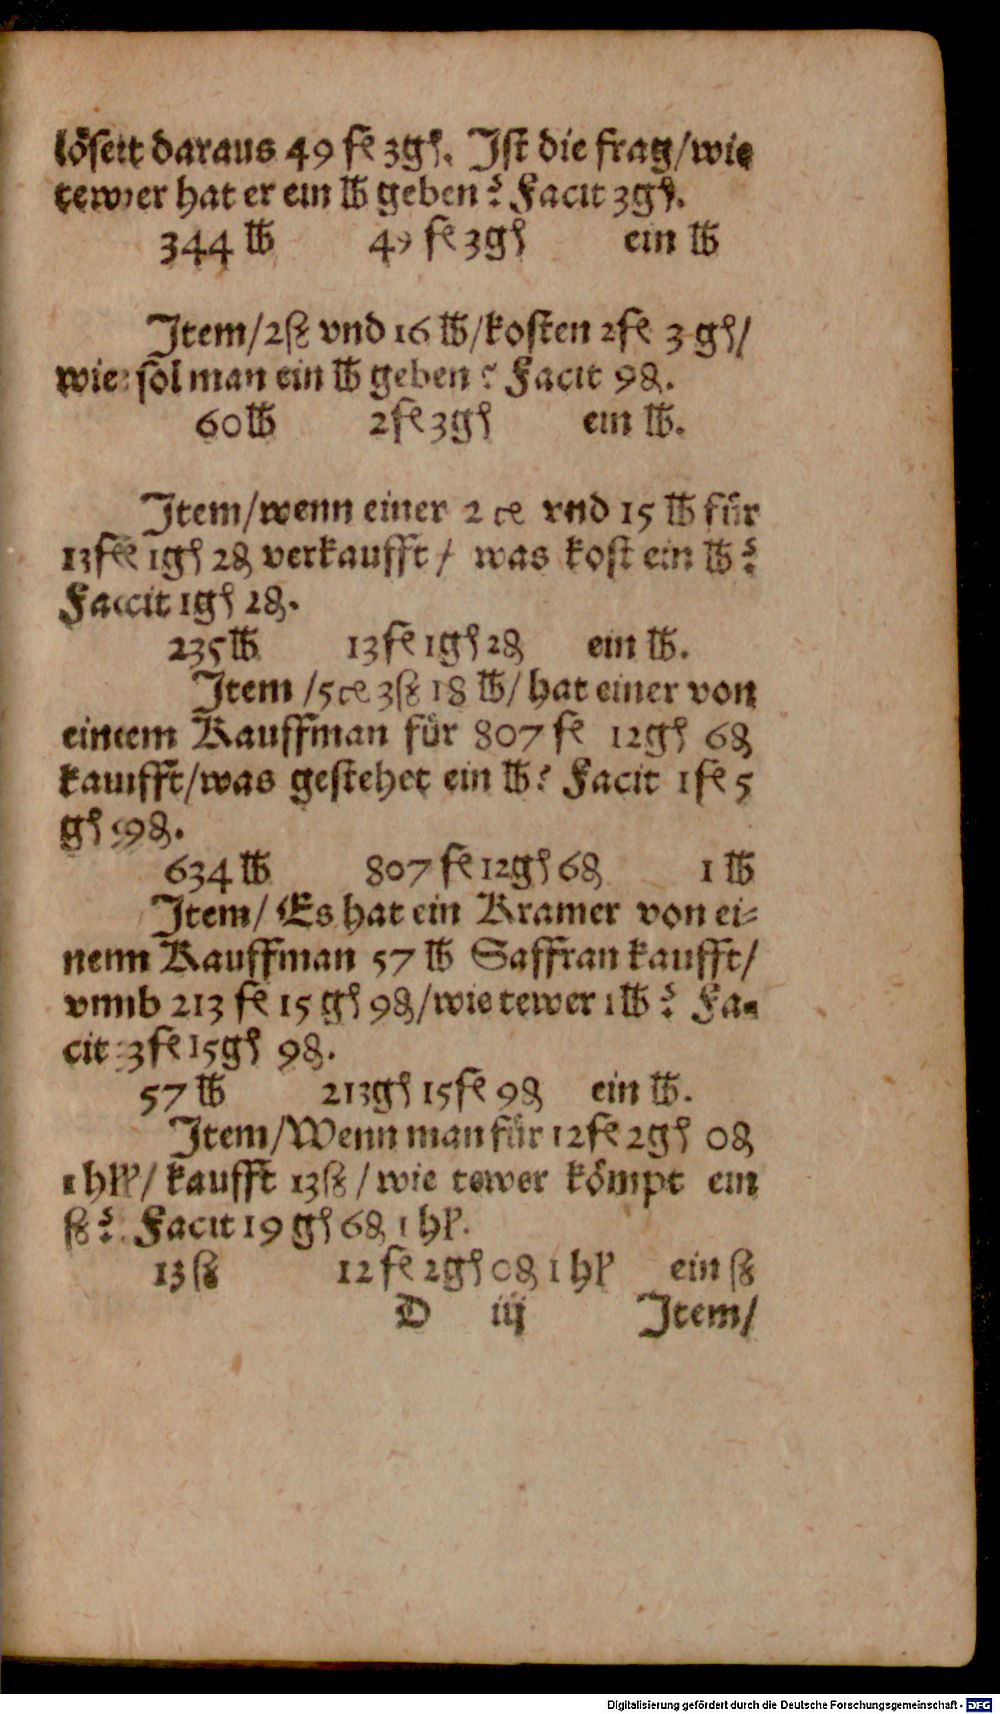 löset daraus 49 fl 3gſ. Iſt die frag/wie
tewer hat er ein lb geben? Facit 3gſ.
344 lb 49 fl 3gſ ein lb
Item/2ſz vnd 16 lb/koſten 2fl 3 gſ/
wie ſol man ein lb geben? Facit 9₰.
60lb 2fl 3gſ ein lb.
Item/wenn einer 2 ce vnd 15 lb für
13fl 1gſ 2₰ verkaufft/ was koſt ein lb?
Faccit 1gſ 2₰.
235lb 13fl 1gſ 2₰ ein lb.
Item /5ce 3ſz 18 lb/ hat einer von
einem Kauffman für 807 fl 12gſ 6₰
kaufft/was geſtehet ein lb? Facit 1fl 5
gſ 9₰.
634 lb 807 fl 12gſ 6₰ 1 lb
Item/ Es hat ein Kramer von ei⸗
nem Kauffman 57 lb Saffran kaufft/
vmb 213 fl 15 gſ 9₰/wie tewer 1lb? Fa⸗
cit 3fl 15gſ 9₰.
57 lb 213gſ 15fl 9₰ ein lb.
Item/Wenn man für 12fl 2gſ 0₰
1 hlr/ kaufft 13ſz/wie tewer kömpt ein
ſz? Facit 19 gſ 6₰ 1 hl.
13ſz 12 fl 2gſ 0₰ 1 hl ein ſz
D iij Item/
Digitalisierung gefördert durch die Deutsche Forschungsgemeinschaft - DFG